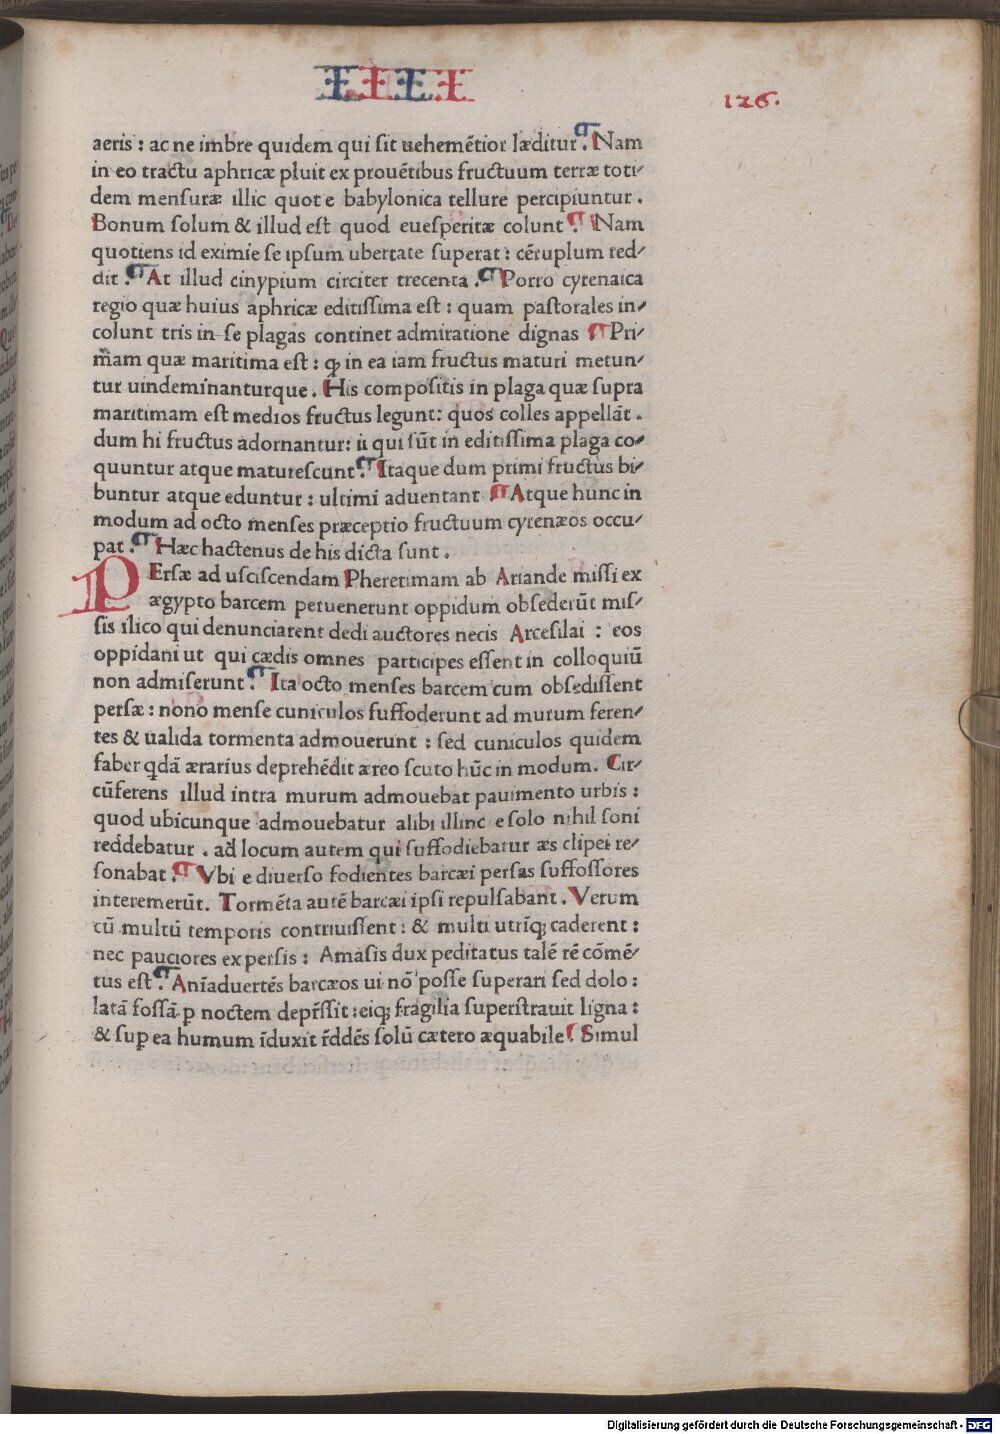 IIII
126.
aeris : ac ne imbre quidem qui sit uehemẽtior læditur. ¶ Nam
in eo tractu aphricæ pluit ex prouẽtibus fructuum terræ toti⸗
dem mensuræ illic quot e babylonica tellure percipiuntur .
Bonum solum & illud est quod euesperitæ colunt ¶. Nam
quotiens id eximie se ipsum ubertate superat : cẽtuplum red⸗
dit . ¶ At illud cinypium circiter trecenta . ¶ Porro cyrenaica
regio quæ huius aphricæ editissima est : quam pastorales in⸗
colunt tris in se plagas continet admiratione dignas ¶ Pri⸗
m̃am quæ maritima est : ꝙ in ea iam fructus maturi metun⸗
tur uindeminanturque . His compositis in plaga quæ supra
maritimam est medios fructus legunt: quos colles appellãt .
dum hi fructus adornantur: ii qui sũt in editissima plaga co⸗
quuntur atque maturescunt. ¶ Itaque dum primi fructus bi⸗
buntur atque eduntur : ultimi aduentant ¶ Atque hunc in
modum ad octo menses præceptio fructuum cyrenæos occu⸗
pat. ¶ Hæc hactenus de his dicta sunt .
PErsæ ad usciscendam Pheretimam ab Ariande missi ex
ægypto barcem peruenerunt oppidum obsederũt mis⸗
sis ilico qui denunciarent dedi auctores necis Arcesilai : eos
oppidani ut qui cædis omnes participes essent in colloquiũ
non admiserunt. ¶ Ita octo menses barcem cum obsedissent
persæ : nono mense cuniculos suffoderunt ad murum feren⸗
tes & ualida tormenta admouerunt : sed cuniculos quidem
faber qdã ærarius deprehẽdit æreo scuto hũc in modum. Cir⸗
cũferens illud intra murum admouebat pauimento urbis :
quod ubicunque admouebatur alibi illinc e solo nihil soni
reddebatur . ad locum autem qui suffodiebatur æs clipei re⸗
sonabat. ¶ Vbi e diuerso fodientes barcæi persas suffossores
interemerũt. Tormẽta autẽ barcæi ipsi repulsabant. Verum
cũ multũ temporis contriuissent : & multi utrĩq; caderent :
nec pauciores ex persis : Amasis dux peditatus talẽ rẽ cõmẽ⸗
tus est . ¶ Anĩaduertẽs barcæos ui nõ posse superari sed dolo :
latã fossã ꝑ noctem depr̃ssit : eiq; fragilia superstrauit ligna :
& suꝑ ea humum ĩduxit r̃ddẽs solũ cætero æquabile ¶. Simul
Digitalisierung gefördert durch die Deutsche Forschungsgemeinschaft - DFG